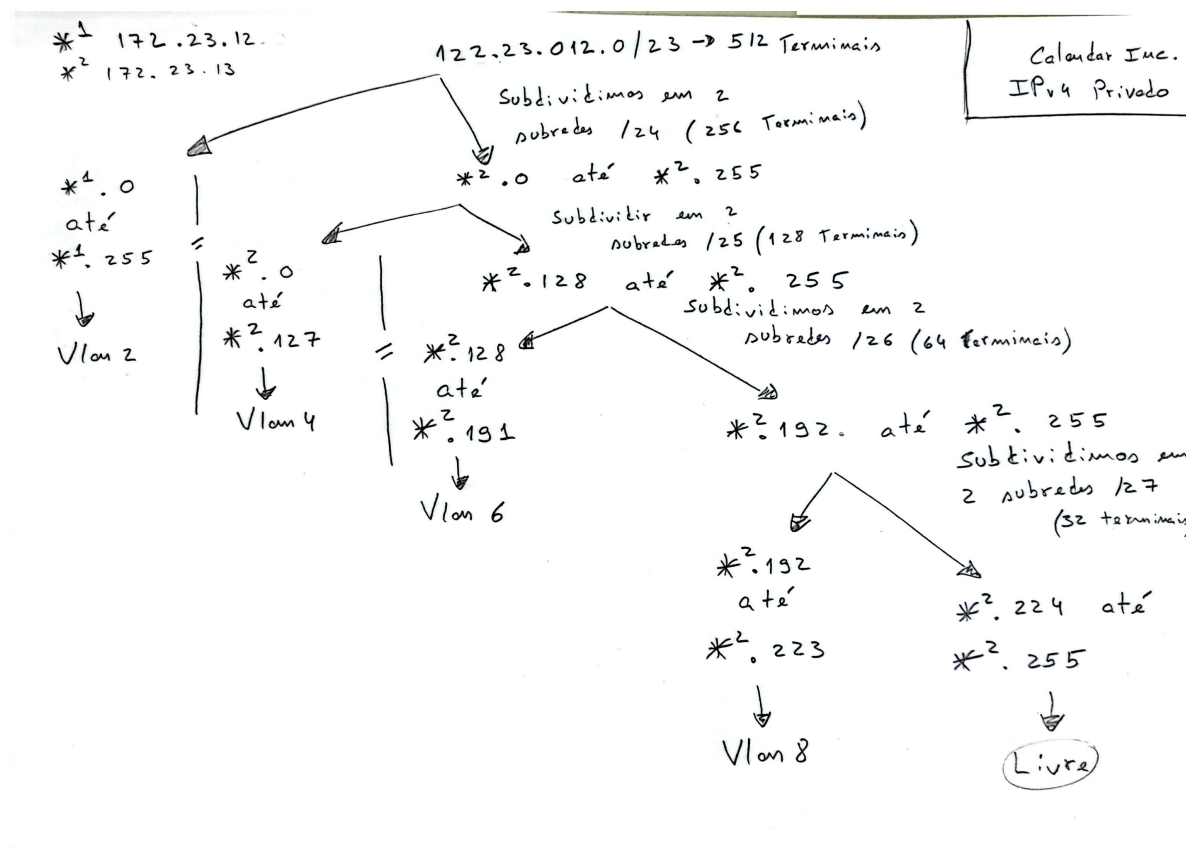 *1 172.23.12.
*2 172.23.13
122.23.012.0/23 → 512 Terminais
Calendar Inc.
IPv4 Privado
Subdividimos em 2
subredes /24 (256 Terminais)
*1.0
até
*1.255
Vlan 2
*2.0 até *2.255
Subdividir em 2
subredes /25 (128 Terminais)
*2.0
até
*2.127
Vlan 4
*2.128 até *2.255
Subdividimos em 2
subredes /26 (64 terminais)
*2.128
até
*2.191
Vlan 6
*2.192. até *2.255
Subdividimos em
2 subredes /27
(32 terminais
*2.192
até
*2.223
Vlan 8
*2.224 até
*2.255
Livre